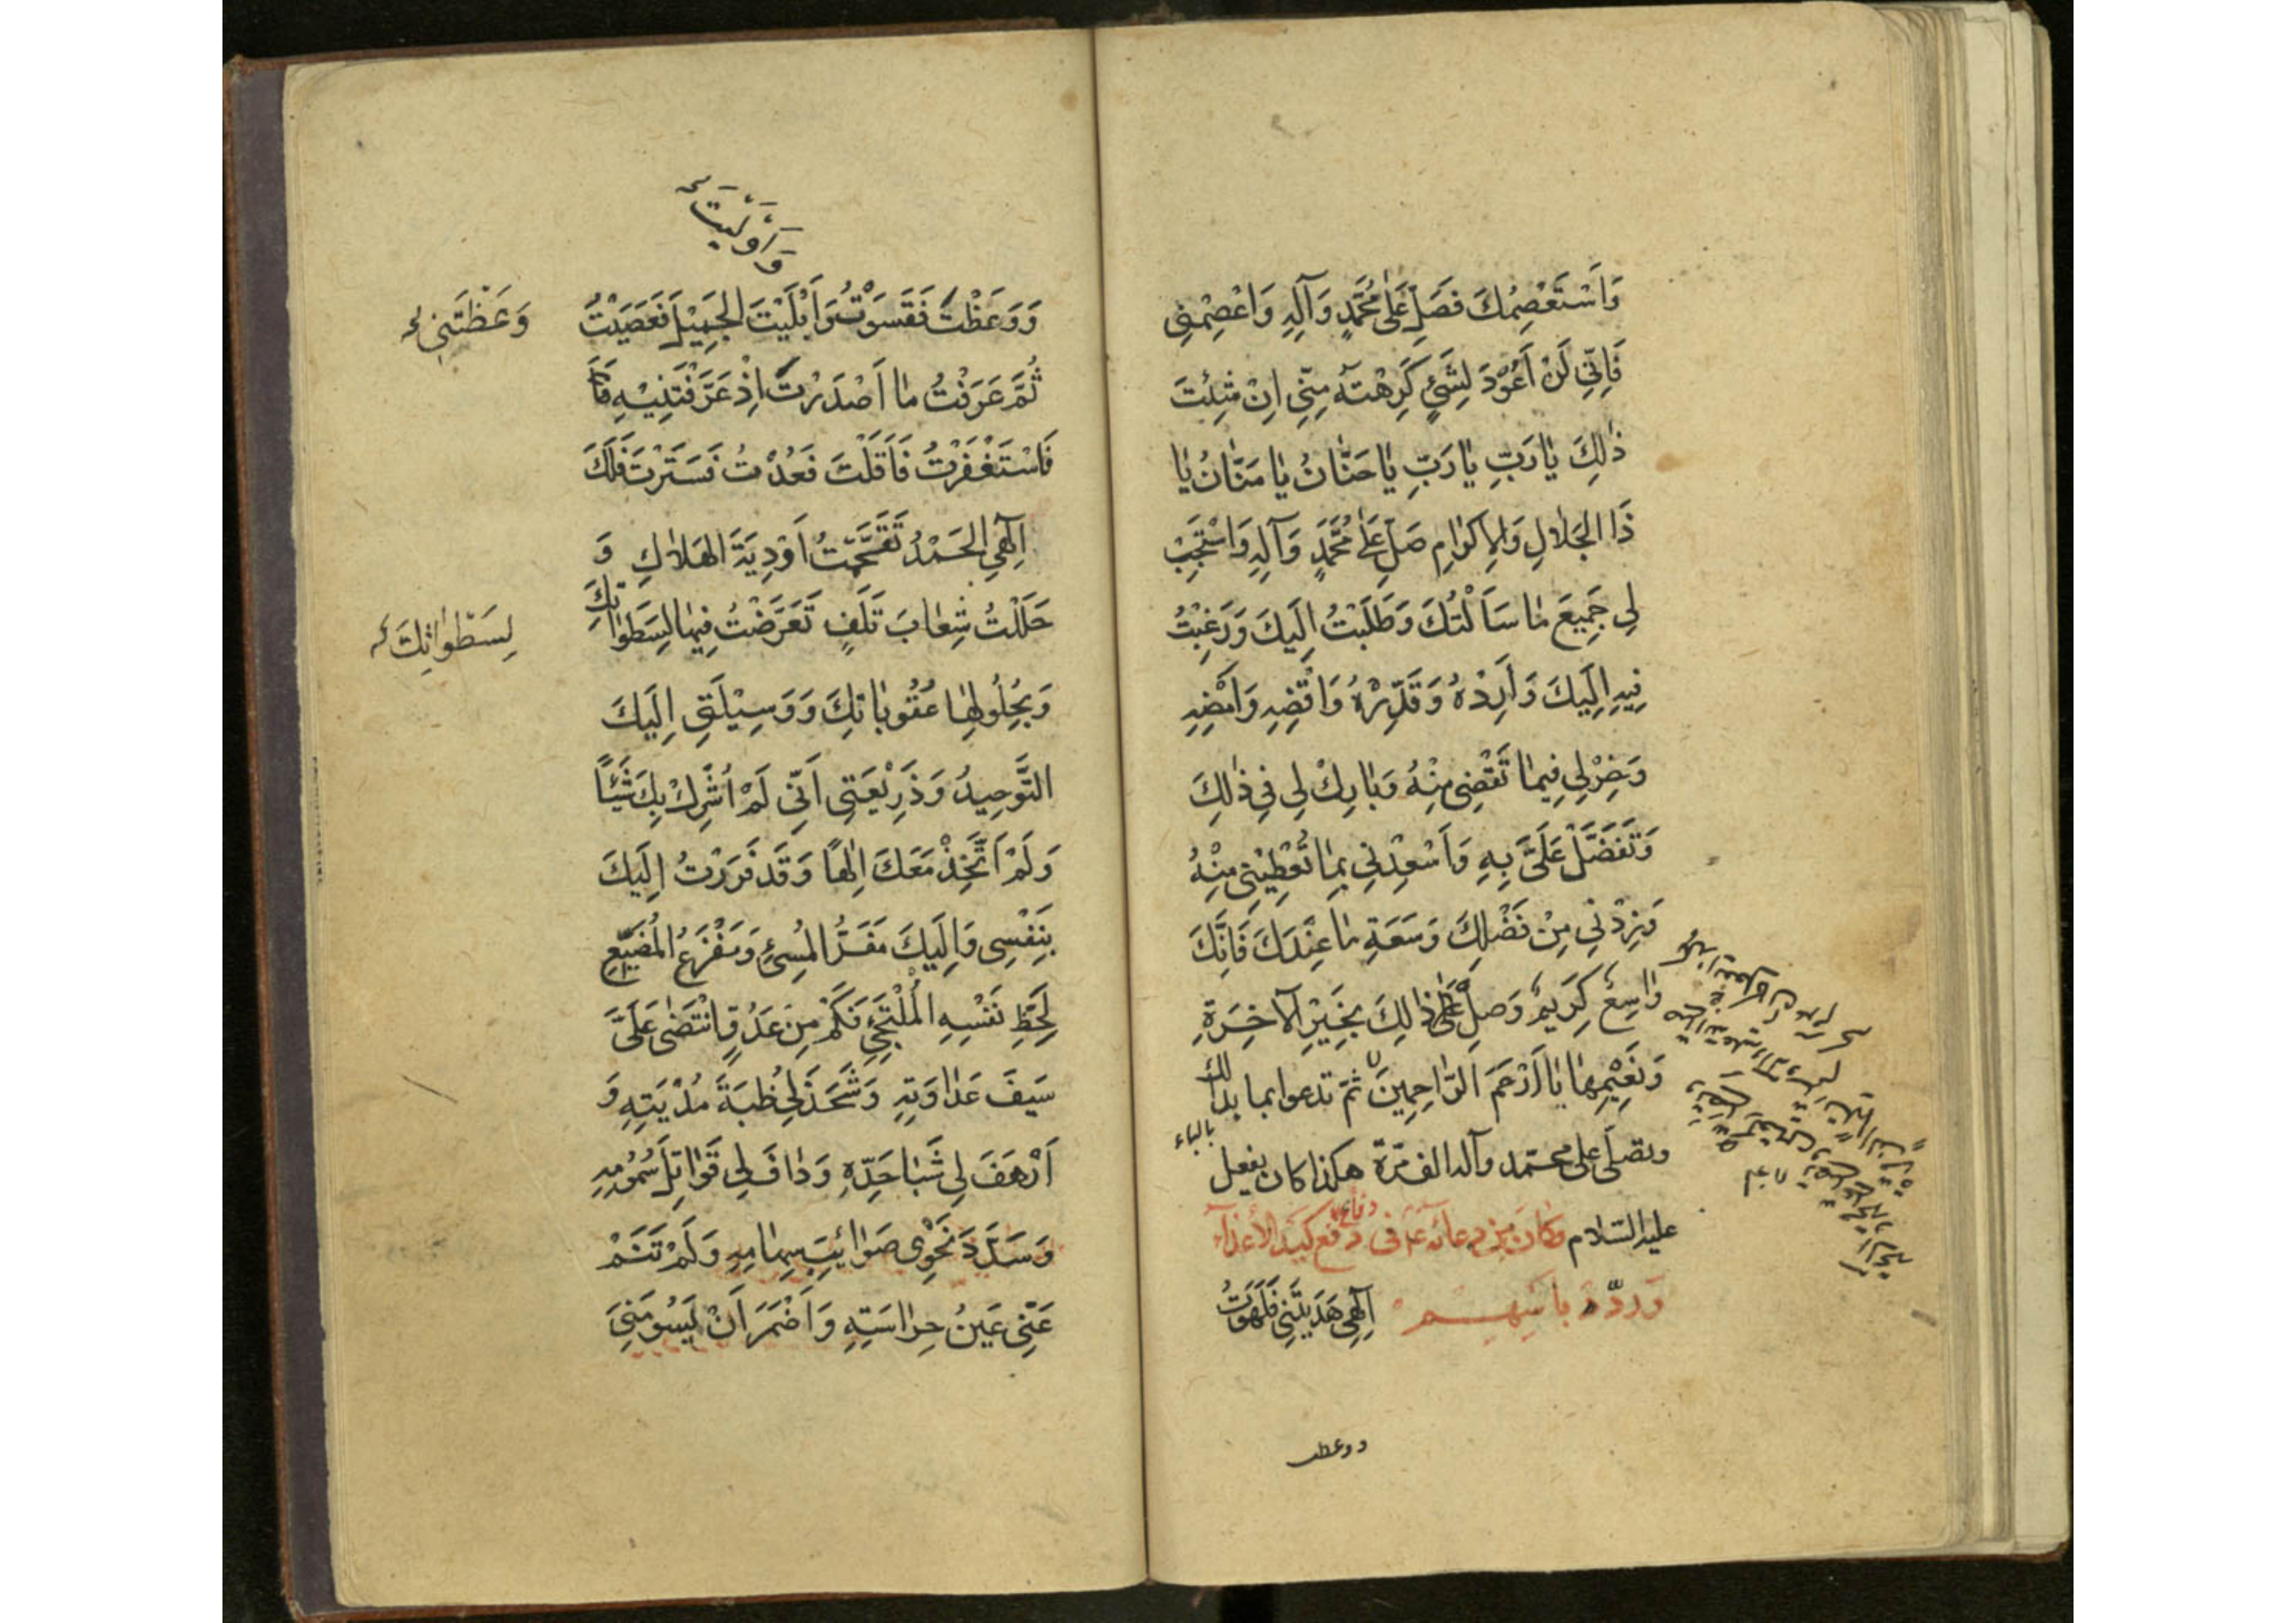 وَاَسْتَعْصِمُكَ فَصَلِّ عَلٰى مُحَمَّدٍ وَآلِهِ وَاعْصِمْنِي
فَاِنِّي لَنْ اَعُوْدَ لِشَيْءٍ كَرِهْتَهُ مِنِّي اِنْ شِئْتَ
ذٰلِكَ يٰا رَبِّ يٰا رَبِّ يٰا حَنّٰانُ يٰا مَنّٰانُ يٰا
ذَا الجَلٰالِ وَالاِكرٰامِ صَلِّ عَلٰى مُحَمَّدٍ وَآلِهِ وَاسْتَجِبْ
لِي جَمِيعَ مٰا سَاَلْتُكَ وَطَلَبْتُ اِلَيكَ وَرَغِبْتُ
فِيهِ اِلَيكَ وَاَرِدْهُ وَقَدِّرْهُ وَاقْضِهِ وَاَمْضِهِ
وَخِرْ لِي فِيمٰا تَقْضِي مِنْهُ وَبٰارِكْ لِي فِي ذٰلِكَ
وَتَفَضَّلْ عَلَيَّ بِهِ وَاَسْعِدْنِي بِمٰا تُعْطِيْنِي مِنْهُ
وَزِدْنِي مِنْ فَضْلِكَ وَسَعَةِ مٰا عِنْدَكَ فَاِنَّكَ
وٰاسِعٌ كَرِيمٌ وَصِلْ ذٰلِكَ بِخَيْرِ الآخِرَةِ
وَنَعِيْمِهٰا يٰا اَرْحَمَ الرّٰاحِمِينَ ثمّ تدعوا بما بدا لك
وتصلّى على محمّد وآله الف مرّة هكذا كان يفعل
بالباء
عليه السّلام وَكانَ مِن دعائه ع في دفع كيدِ الأعداء
دفاع
وَردّ باسهم اِلٰهِي هَدَيتَنِي فَلَهَوْتُ
ووعظت
وَاَوْلَيتَ
وَوَعَظْتَ فَقَسَوْتُ وَاَبْلَيْتَ الجَمِيْلَ فَعَصَيْتُ
وَعَظْتَنِي
ثُمَّ عَرَفْتُ مٰا اَصْدَرْتَ اِذْ عَرَّفْتَنِيْهِ
فَاسْتَغْفَرْتُ فَاَقَلْتَ فَعُدْتُ فَسَتَرْتَ فَلَكَ
اِلٰهِي الحَمْدُ تَقَحَّمْتُ اَوْدِيَةَ الهَلاٰكِ وَ
حَلَلْتُ شِعٰابَ تَلَفٍ تَعَرَّضْتُ فِيهٰا لِسَطَوٰاتِكَ
لِسَطَوٰاتِكَ
وَبِحُلُولِهٰا عُقُوبٰاتِكَ وَوَسِيْلَتِي اِلَيكَ
التَّوحِيدُ وَذَرِيْعَتِي اَنِّي لَمْ اُشْرِكْ بِكَ شَيْئًا
وَلَمْ اَتَّخِذْ مَعَكَ اِلٰهًا وَقَد فَرَرْتُ اِلَيكَ
بِنَفْسِي وَاِلَيكَ مَفَرُّ المُسِيءِ وَمَفْزَعُ المُضَيِّعِ
لِحَظِّ نَفْسِهِ المُلْتَجِئِ فَكَمْ مِن عَدُوٍّ انْتَضٰى عَلَيَّ
سَيفَ عَدٰاوَتِهِ وَشَحَذَ لِي ظُبَةَ مُدْيَتِهِ وَ
اَرْهَفَ لِي شَبٰا حَدِّهِ وَدٰافَ لِي قَوٰاتِلَ سُمُومِهِ
وَسَدَّدَ نَحْوِي صَوٰائِبَ سِهٰامِهِ وَلَمْ تَنَمْ
عَنِّي عَينُ حِرٰاسَتِهِ وَاَضْمَرَ اَنْ يَسُومَنِيَ